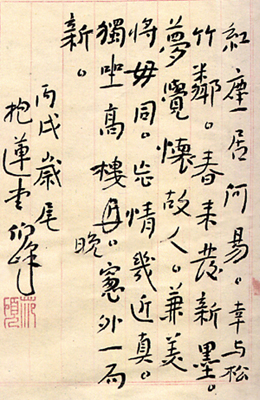 紅塵居何易。幸与松
竹鄰。春来發新墨。
夢覺懷故人。兼美
將毋同。忘情幾近真。
獨坐高樓晚。窻外一雨
新。
丙戌歲尾
抱蓮堂